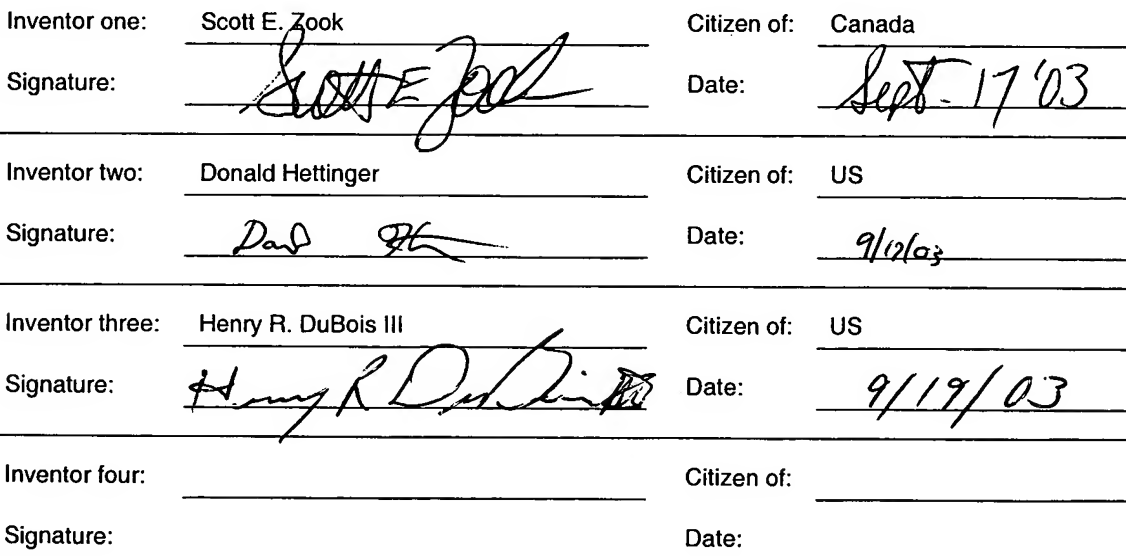 Inventor one: Scott E. Zook Citizen of: Canada
Signature: Scott E Zook Date: Sept. 17 '03
Inventor two: Donald Hettinger Citizen of: US
Signature: Date: 9/17/03
Inventor three: Henry R. DuBois III Citizen of: US
Signature: Henry R DuBois III Date: 9/19/03
Inventor four: Citizen of:
Signature: Date: